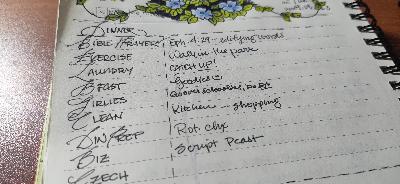 DINNER
BIBLE/PRAYERS Eph. 4:29 - edifying words
EXERCISE Walk in the park
LAUNDRY CATCH UP!
BFAST
GIRLIES
CLEAN Kitchen - shopping
DIN/PREP Rot. chx
BIZ Script Pcast
CZECH